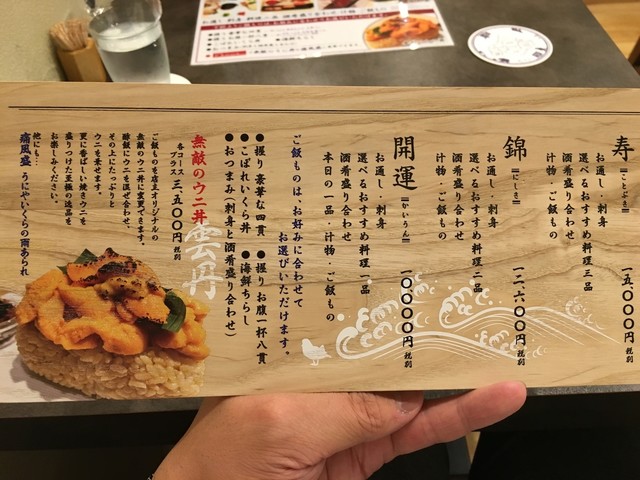 寿
〔ことぶき〕
お通し・刺身
選べるおすすめ料理三品
酒肴盛り合わせ
汁物・ご飯もの
一五〇〇〇円 税別
錦
〔にしき〕
お通し・刺身
選べるおすすめ料理二品
酒肴盛り合わせ
汁物・ご飯もの
一二、六〇〇円 税別
開運
〔かいうん〕
お通し・刺身
選べるおすすめ料理一品
酒肴盛り合わせ
本日の一品・汁物・ご飯もの
一〇〇〇〇円 税別
ご飯ものは、お好みに合わせて
お選びいただけます。
●握り 豪華な四貫
●握り お腹一杯八貫
●こぼれいくら丼
●海鮮ちらし
●おつまみ(刺身と酒肴盛り合わせ)
無敵のウニ丼
雲丹
各コース
プラス
三、五〇〇円 税別
ご飯ものを店主オリジナルの
無敵のウニ丼に変更できます。
酢飯にウニを混ぜ合わせ、
その上にたっぷりと
ウニを乗せます。
更に香ばしい焼きウニを
盛りつけた至極の逸品を
お楽しみください。
他にも…
痛風盛 うにやいくらの雨あられ